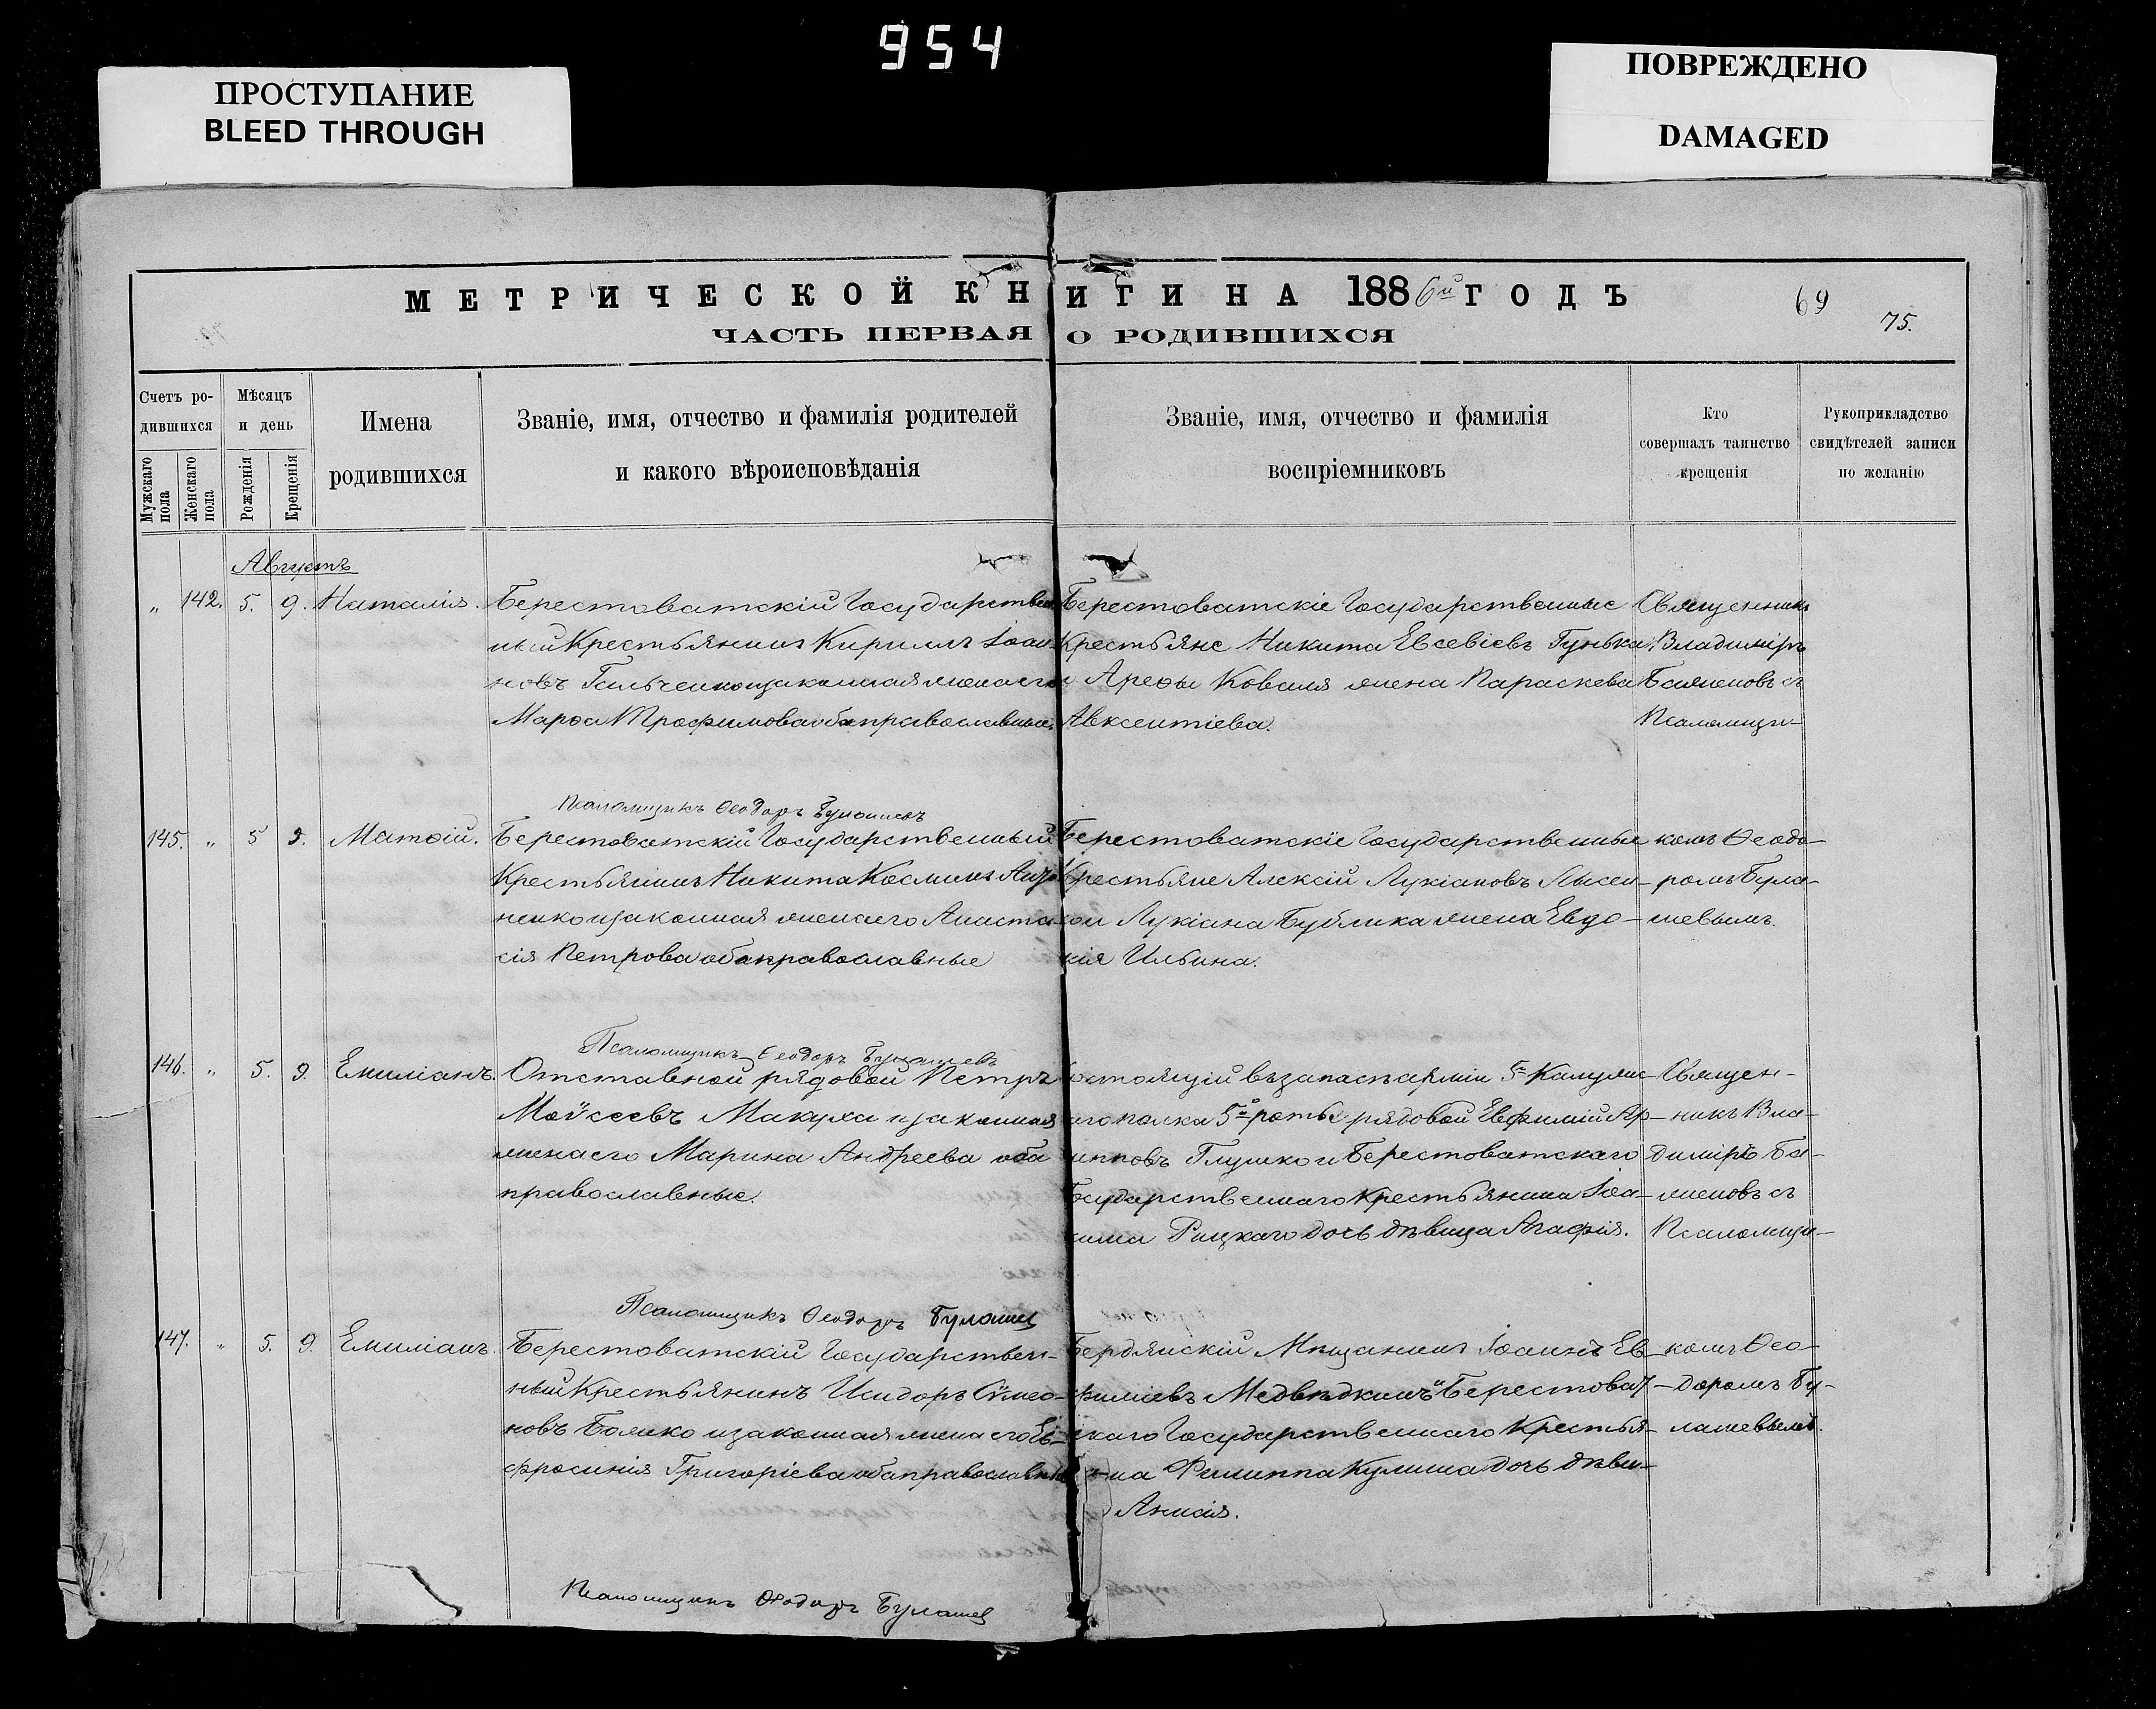 954
ПРОСТУПАНИЕ
BLEED THROUGH
ПОВРЕЖДЕНО
DAMAGED
МЕТРИЧЕСКОЙ КНИГИ НА 1886й ГОДЪ
69
75.
ЧАСТЬ ПЕРВАЯ О РОДИВШИХСЯ
Счетъ ро-
дившихся
Мужскаго пола
Женскаго пола
Мѣсяцъ
и день
Рожденія
Крещенія
Имена
родившихся
Званіе, имя, отчество и фамилія родителей
и какого вѣроисповѣданія
Званіе, имя, отчество и фамилія
воспріемниковъ
Кто
совершалъ таинство
крещенія
Рукоприкладство
свидѣтелей записи
по желанію
Августъ
„ 142. 5. 9. Наталія.
Берестоватскій Государствен
ный Крестьянинъ Кириллъ Іоан-
новъ законная жена его
Марѳа Трофимова оба православные.
Берестоватскіе Государственные
Крестьяне Никита Евсевіевъ Гунька
и Ареѳы Коваля жена Параскева
Авксентіева.
Священникъ
Владиміръ
Баженовъ съ
Псаломщи-
Псаломщикъ Ѳеодоръ Булашевъ
145. „ 5 9. Матѳій.
Берестоватскій Государственный
Крестьянинъ Никита Косминъ
ненко и законная жена его Анаста
сія Петрова оба православные
Берестоватскіе Государственные
Крестьяне Алексій Лукіановъ Лысен-
ко и Лукіана Бублика жена Евдо-
кія Ильина.
комъ Ѳеодо-
ромъ Була-
шевымъ.
Псаломщикъ Ѳеодоръ Булашевъ
146. „ 5. 9. Емиліанъ.
Отставной рядовой Петръ
Моѵсеевъ Макуха и законная
жена его Марина Андреева оба
православные.
состоящій въ запасѣ арміи 5го Калужс-
каго полка 5й роты рядовой Евфимій Ар-
хипповъ Глушко и Берестоватскаго
Государственнаго Крестьянина Іоа-
кима Рицкаго дочь дѣвица Агафія.
Священ-
никъ Вла-
диміръ Ба-
женовъ съ
Псаломщи-
Псаломщикъ Ѳеодоръ Булашев
147. „ 5. 9. Емиліанъ.
Берестоватскій Государствен-
ный Крестьянинъ Исидоръ Сѵмео-
новъ Божко и законная жена его Ев-
фросинія Григоріева оба православные
Бердянскій Мѣщанинъ Іоаннъ Ев-
фиміевъ Медвѣдкинъ и Берестоват-
скаго Государственнаго Крестья-
нина Филиппа Кулиша дочь дѣви-
ца Анисія.
комъ Ѳео-
доромъ Бу-
лашевымъ.
Псаломщикъ Ѳеодоръ Булашев